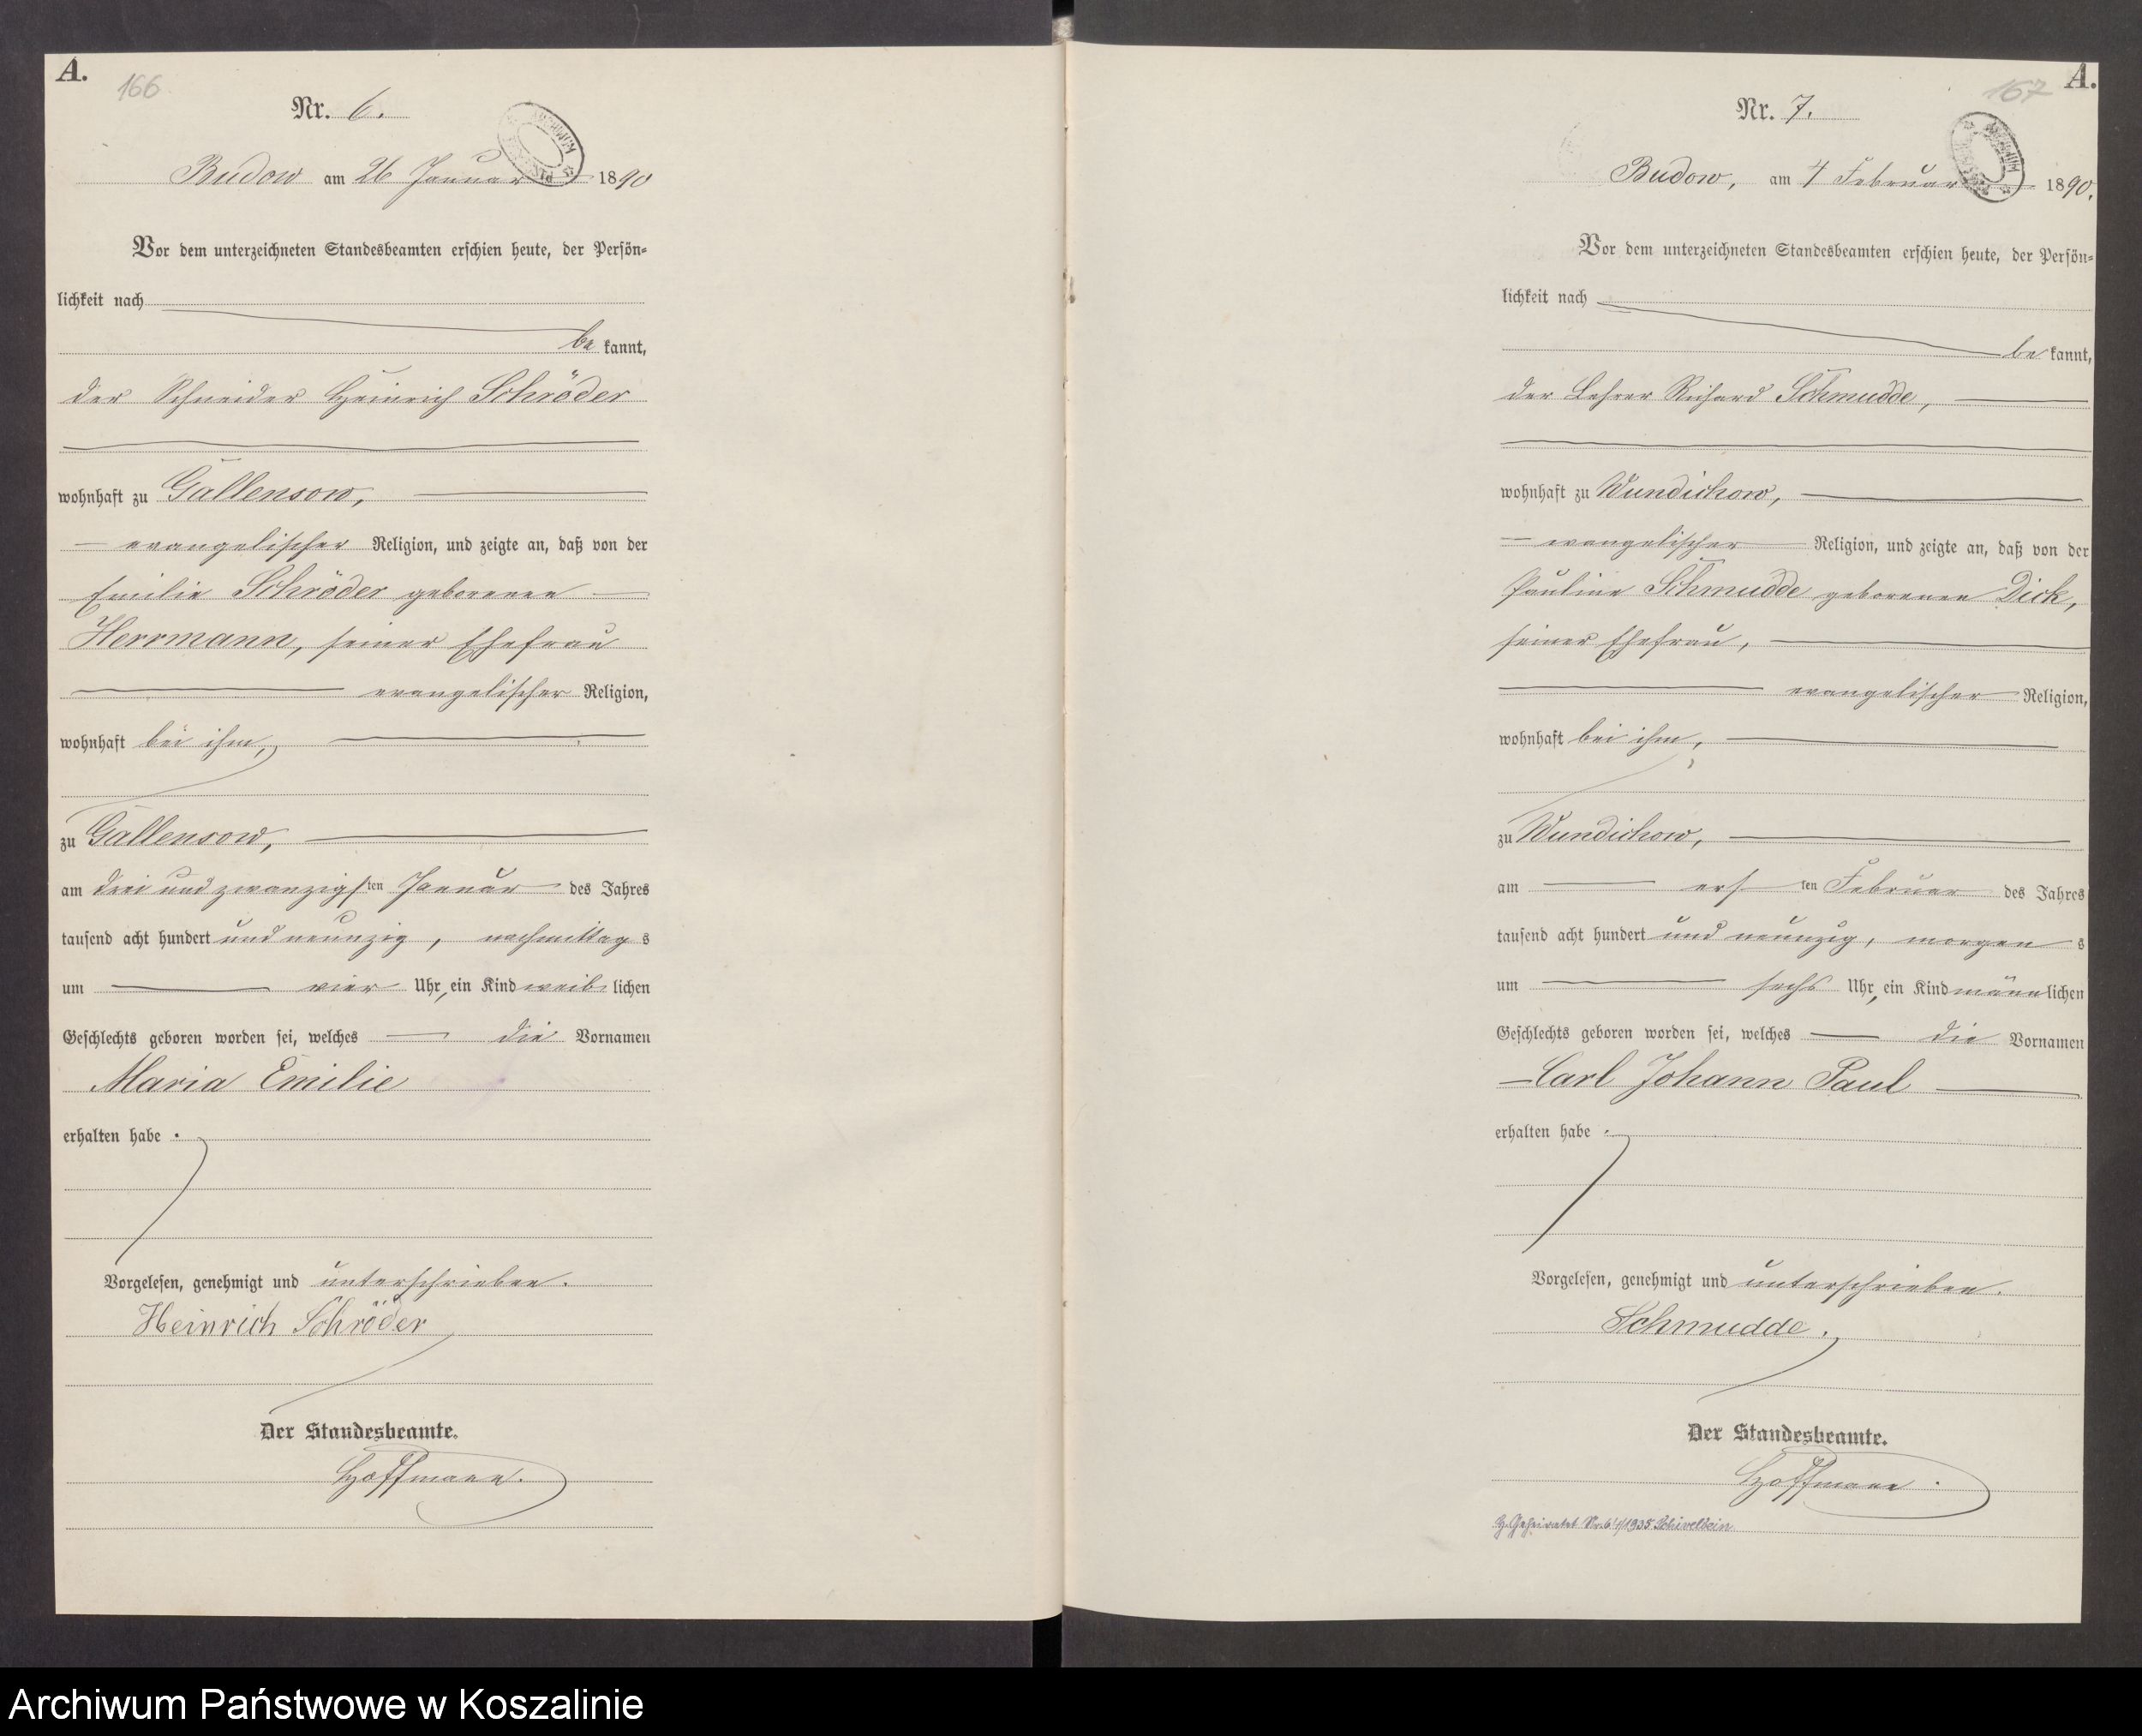 A.
166
Nr. 6.
Budow am 26 Januar 1890
Vor dem unterzeichneten Standesbeamten erschien heute, der Persön-
lichkeit nach
be kannt,
der Schneider Heinrich Schröder
wohnhaft zu Gallensow,
evangelischer Religion, und zeigte an, daß von der
Emilie Schröder geborenen
Herrmann, seiner Ehefrau
evangelischer Religion,
wohnhaft bei ihm,
zu Gallensow,
am drei und zwanzigsten Januar des Jahres
tausend acht hundert und neunzig, nachmittags
um vier Uhr, ein Kind weiblichen
Geschlechts geboren worden sei, welches die Vornamen
Maria Emilie
erhalten habe.
Vorgelesen, genehmigt und unterschrieben.
Heinrich Schröder
Der Standesbeamte.
Hoffmann.
A.
167
Nr. 7.
Budow, am 4 Februar 1890.
Vor dem unterzeichneten Standesbeamten erschien heute, der Persön-
lichkeit nach
be kannt,
der Lehrer Richard Schmudde,
wohnhaft zu Wundichow,
evangelischer Religion, und zeigte an, daß von der
Pauline Schmudde geborenen Dick,
seiner Ehefrau,
evangelischer Religion,
wohnhaft bei ihm,
zu Wundichow,
am ersten Februar des Jahres
tausend acht hundert und neunzig, morgens
um sechs Uhr, ein Kind männlichen
Geschlechts geboren worden sei, welches die Vornamen
Carl Johann Paul
erhalten habe.
Vorgelesen, genehmigt und unterschrieben.
Schmudde.
Der Standesbeamte.
Hoffmann.
Geheiratet /1935 Schivelbein
Archiwum Państwowe w Koszalinie